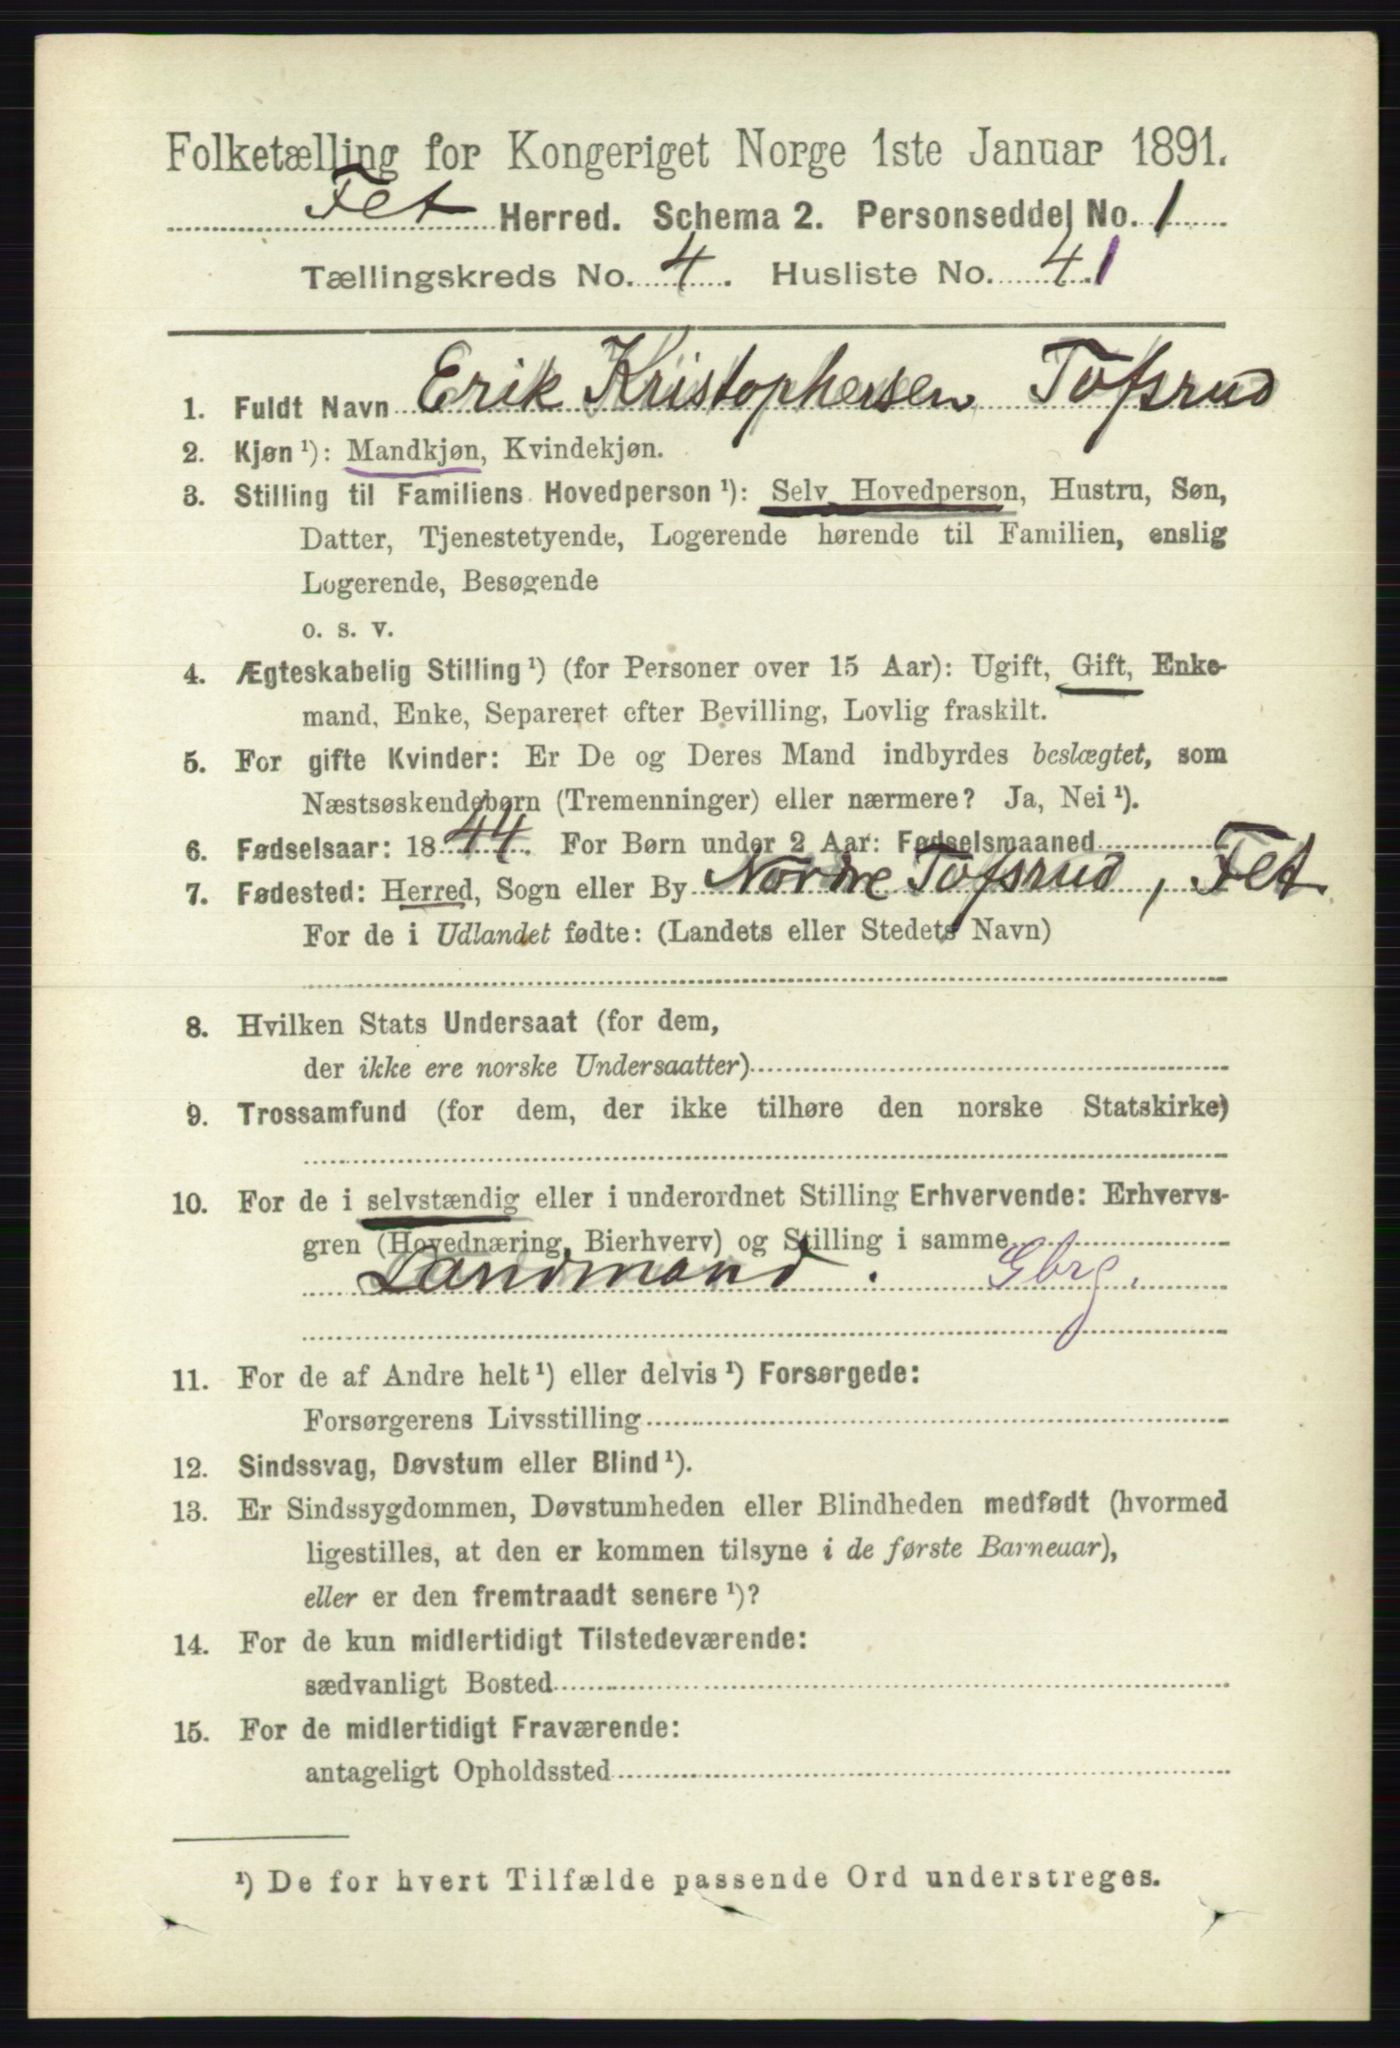 Folketælling for Kongeriget Norge 1ste Januar 1891.
Fet Herred. Schema 2. Personseddel No. 1
Tællingskreds No. 4. Husliste No. 41
1. Fuldt Navn Erik Kristophersen Tofsrud
2. Kjøn ¹): Mandkjøn, Kvindekjøn.
3. Stilling til Familiens Hovedperson ¹): Selv Hovedperson, Hustru, Søn,
Datter, Tjenestetyende, Logerende hørende til Familien, enslig
Logerende, Besøgende
o. s. v.
4. Ægteskabelig Stilling ¹) (for Personer over 15 Aar): Ugift, Gift, Enke-
mand, Enke, Separeret efter Bevilling, Lovlig fraskilt.
5. For gifte Kvinder: Er De og Deres Mand indbyrdes beslægtet, som
Næstsøskendebørn (Tremenninger) eller nærmere? Ja, Nei ¹).
6. Fødselsaar: 1844. For Børn under 2 Aar: Fødselsmaaned
7. Fødested: Herred, Sogn eller By Nordre Tofsrud, Fet
For de i Udlandet fødte: (Landets eller Stedets Navn)
8. Hvilken Stats Undersaat (for dem,
der ikke ere norske Undersaatter)
9. Trossamfund (for dem, der ikke tilhøre den norske Statskirke)
10. For de i selvstændig eller i underordnet Stilling Erhvervende: Erhvervs-
gren (Hovednæring, Bierhverv) og Stilling i samme
Landmand. Gbrg.
11. For de af Andre helt ¹) eller delvis ¹) Forsørgede:
Forsørgerens Livsstilling
12. Sindssvag, Døvstum eller Blind ¹).
13. Er Sindssygdommen, Døvstumheden eller Blindheden medfødt (hvormed
ligestilles, at den er kommen tilsyne i de første Barneuar),
eller er den fremtraadt senere ¹)?
14. For de kun midlertidigt Tilstedeværende:
sædvanligt Bosted
15. For de midlertidigt Fraværende:
antageligt Opholdssted
¹) De for hvert Tilfælde passende Ord understreges.